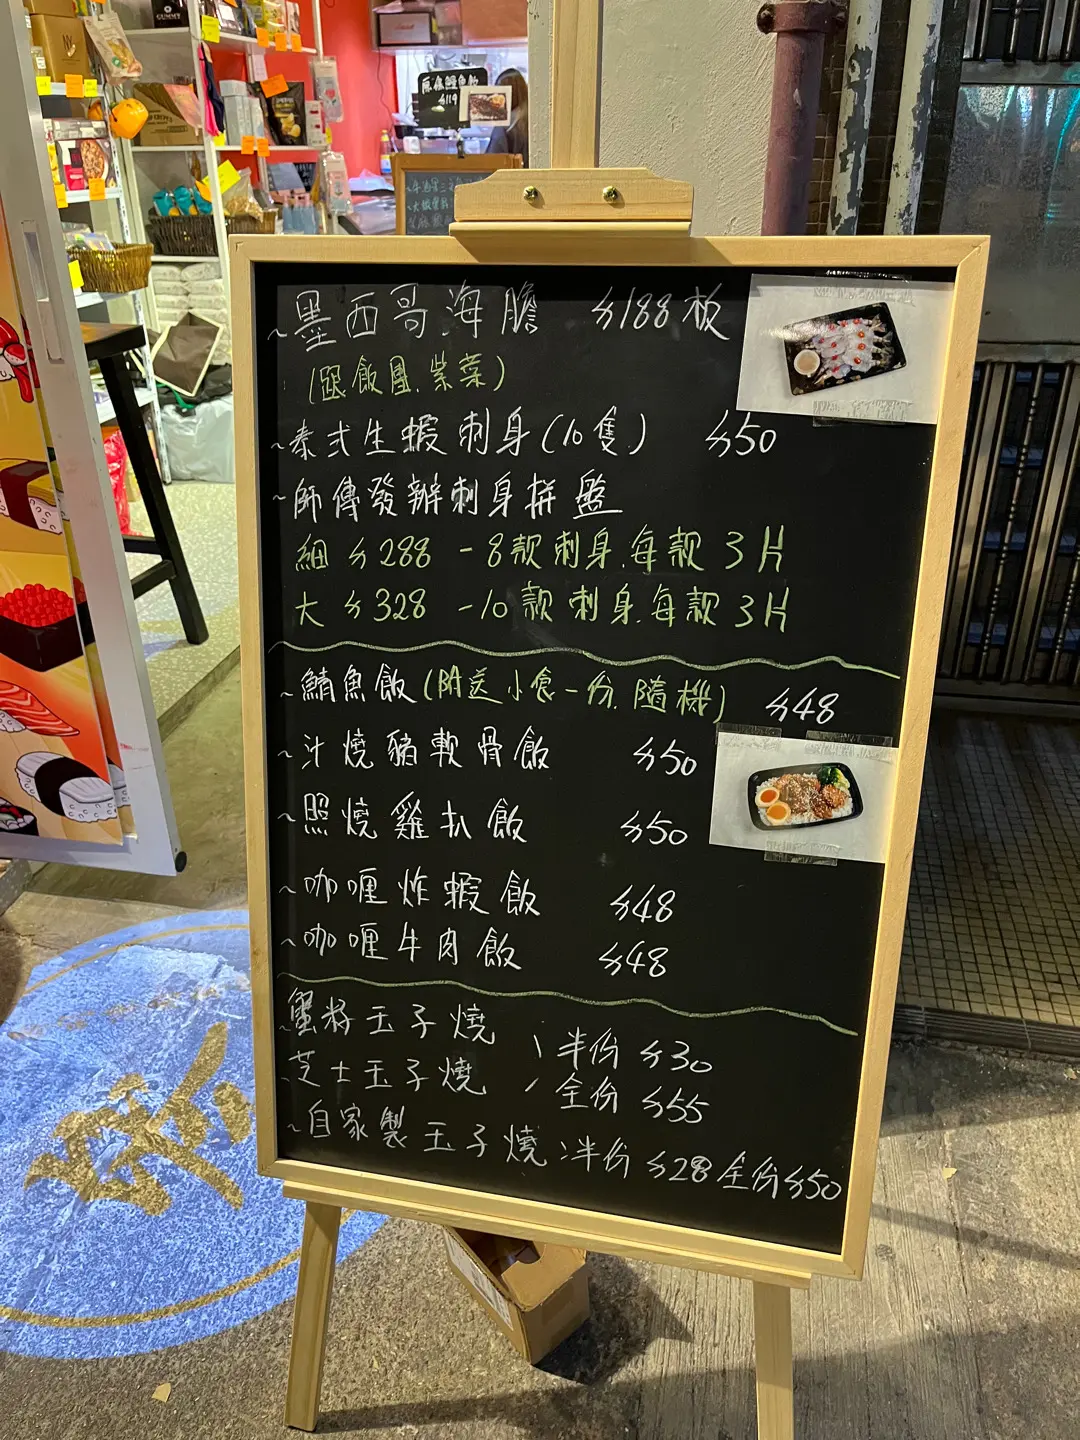 GUMMY
原條鰻魚飯
$119
~墨西哥海膽 $188板
(跟飯團.紫菜)
~泰式生蝦刺身(10隻) $50
~師傅發辦刺身拼盤
細 $288 -8款刺身.每款3片
大 $328 -10款刺身.每款3片
~鯖魚飯(附送小食一份.隨機) $48
~汁燒豬軟骨飯 $50
~照燒雞扒飯 $50
~咖喱炸蝦飯 $48
~咖喱牛肉飯 $48
~蟹籽玉子燒 半份 $30
~芝士玉子燒 全份 $55
~自家製玉子燒:半份 $28 全份 $50